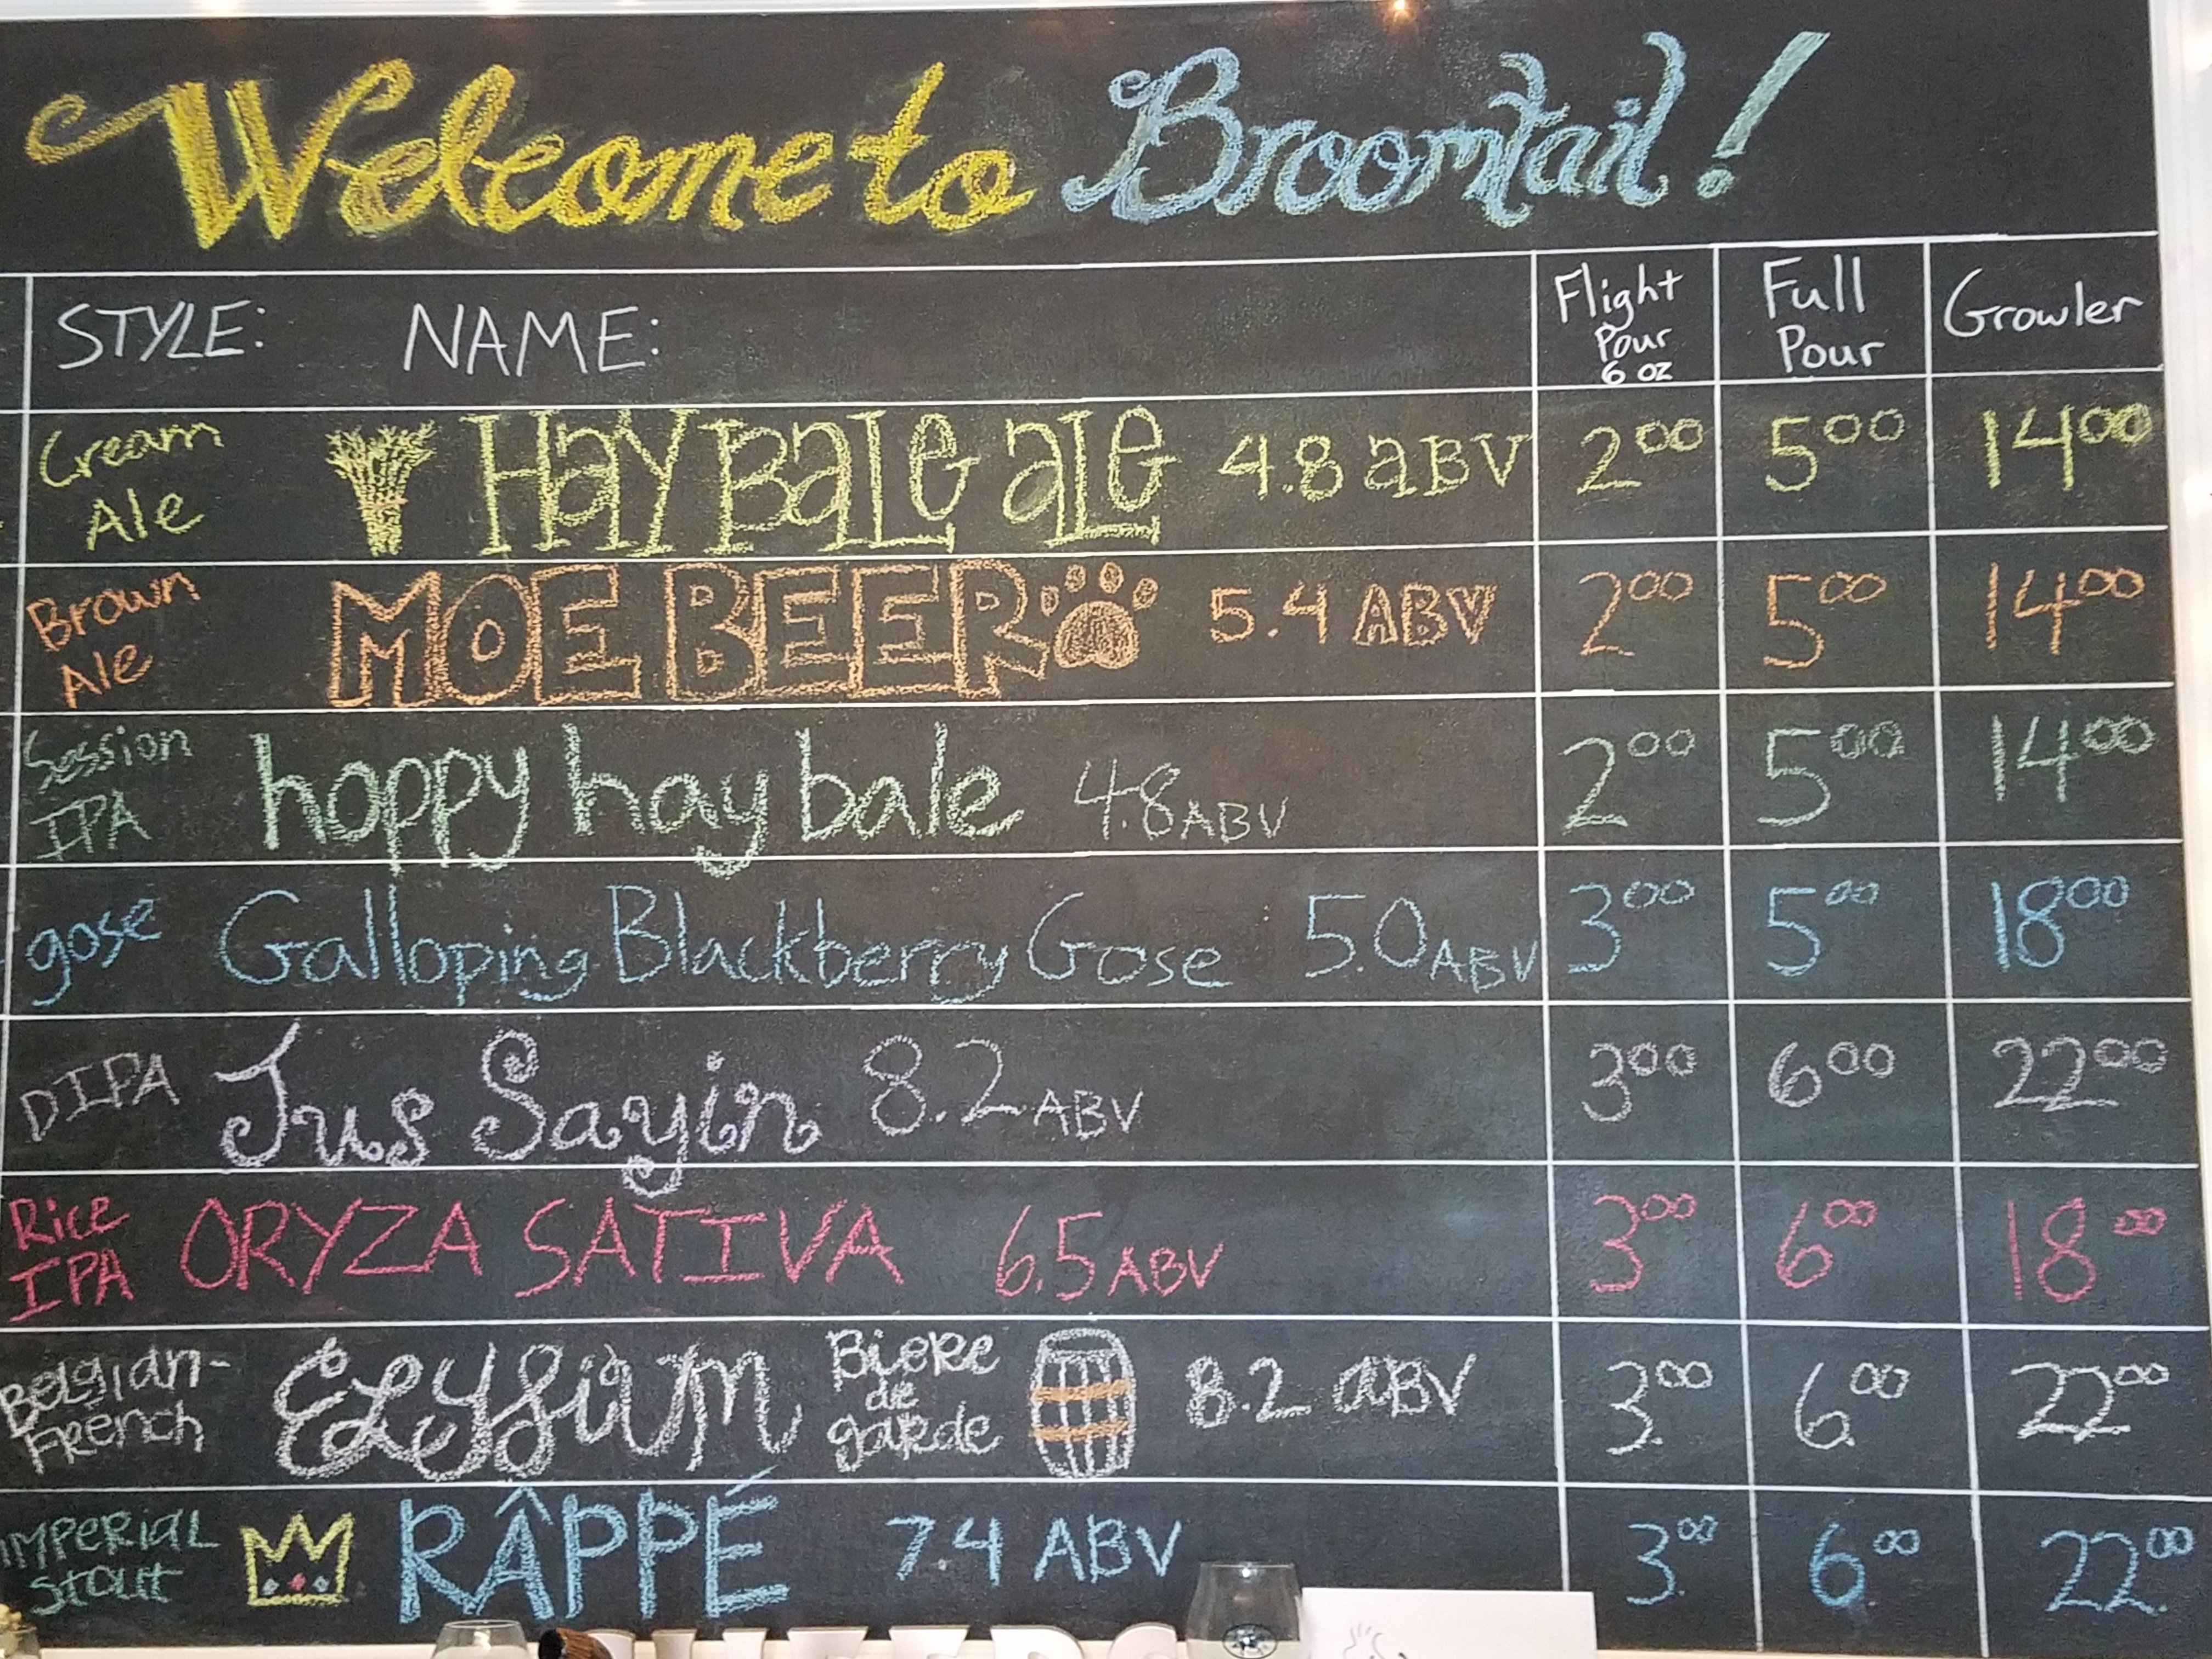 Welcome to Broomtail!
STYLE: NAME: Flight Pour 6 oz Full Pour Growler
Cream Ale Hay Bale ale 4.8 aBV 2.00 5.00 14.00
Brown Ale MOE BEER 5.4 ABV 2.00 5.00 14.00
Session IPA hoppy hay bale 4.8 ABV 2.00 5.00 14.00
gose Galloping Blackberry Gose 5.0 ABV 3.00 5.00 18.00
DIPA Jus Sayin 8.2 ABV 3.00 6.00 22.00
Rice IPA ORYZA SATIVA 6.5 ABV 3.00 6.00 18.00
Belgian-French Elysium Biere de garde 8.2 aBV 3.00 6.00 22.00
IMPERIAL Stout RÂPPÉ 7.4 ABV 3.00 6.00 22.00